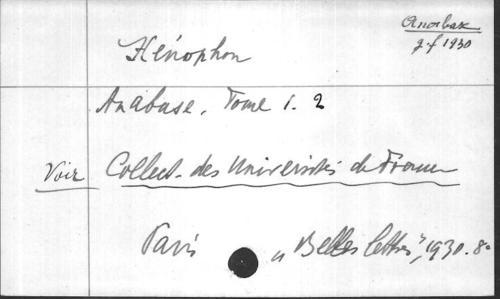 g.f 1930
Xénophon
Anabase. Tome 1. 2
Voir Collect. des Universités de France
Paris "Belles lettres", 1930. 8°